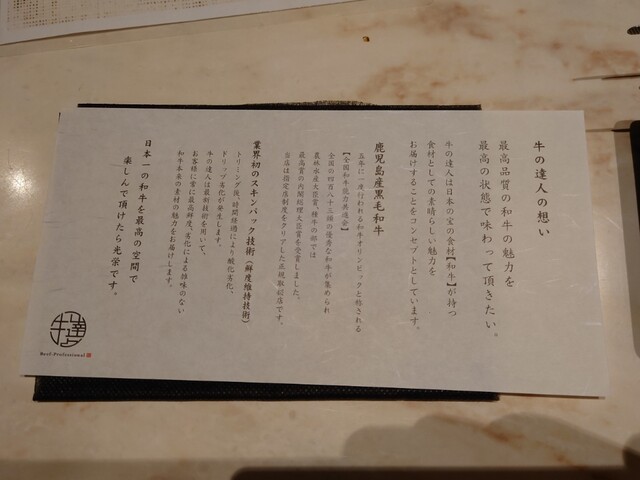 牛の達人の想い
最高品質の和牛の魅力を
最高の状態で味わって頂きたい。
牛の達人は日本の宝の食材【和牛】が持つ
食材としての素晴らしい魅力を
お届けすることをコンセプトとしています。
鹿児島産黒毛和牛
五年に一度行われる和牛オリンピックと称される
【全国和牛能力共進会】
全国の四百八十三頭の優秀な和牛が集められ
農林水産大臣賞、種牛の部では
最高賞の内閣総理大臣賞を受賞しました。
当店は指定店制度をクリアした正規取扱店です。
業界初のスキンパック技術(鮮度維持技術)
トリミング後、時間経過により酸化劣化、
ドリップ劣化が発生します。
牛の達人は最新技術を用いて、
お客様に常に最高鮮度、劣化による雑味のない
和牛本来の素材の魅力をお届けします。
日本一の和牛を最高の空間で
楽しんで頂けたら光栄です。
牛達人
Beef-Professional